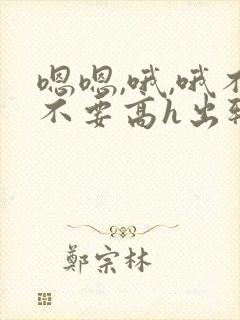 嗯嗯,哦,哦不
不要高h出轨
鄭宗林